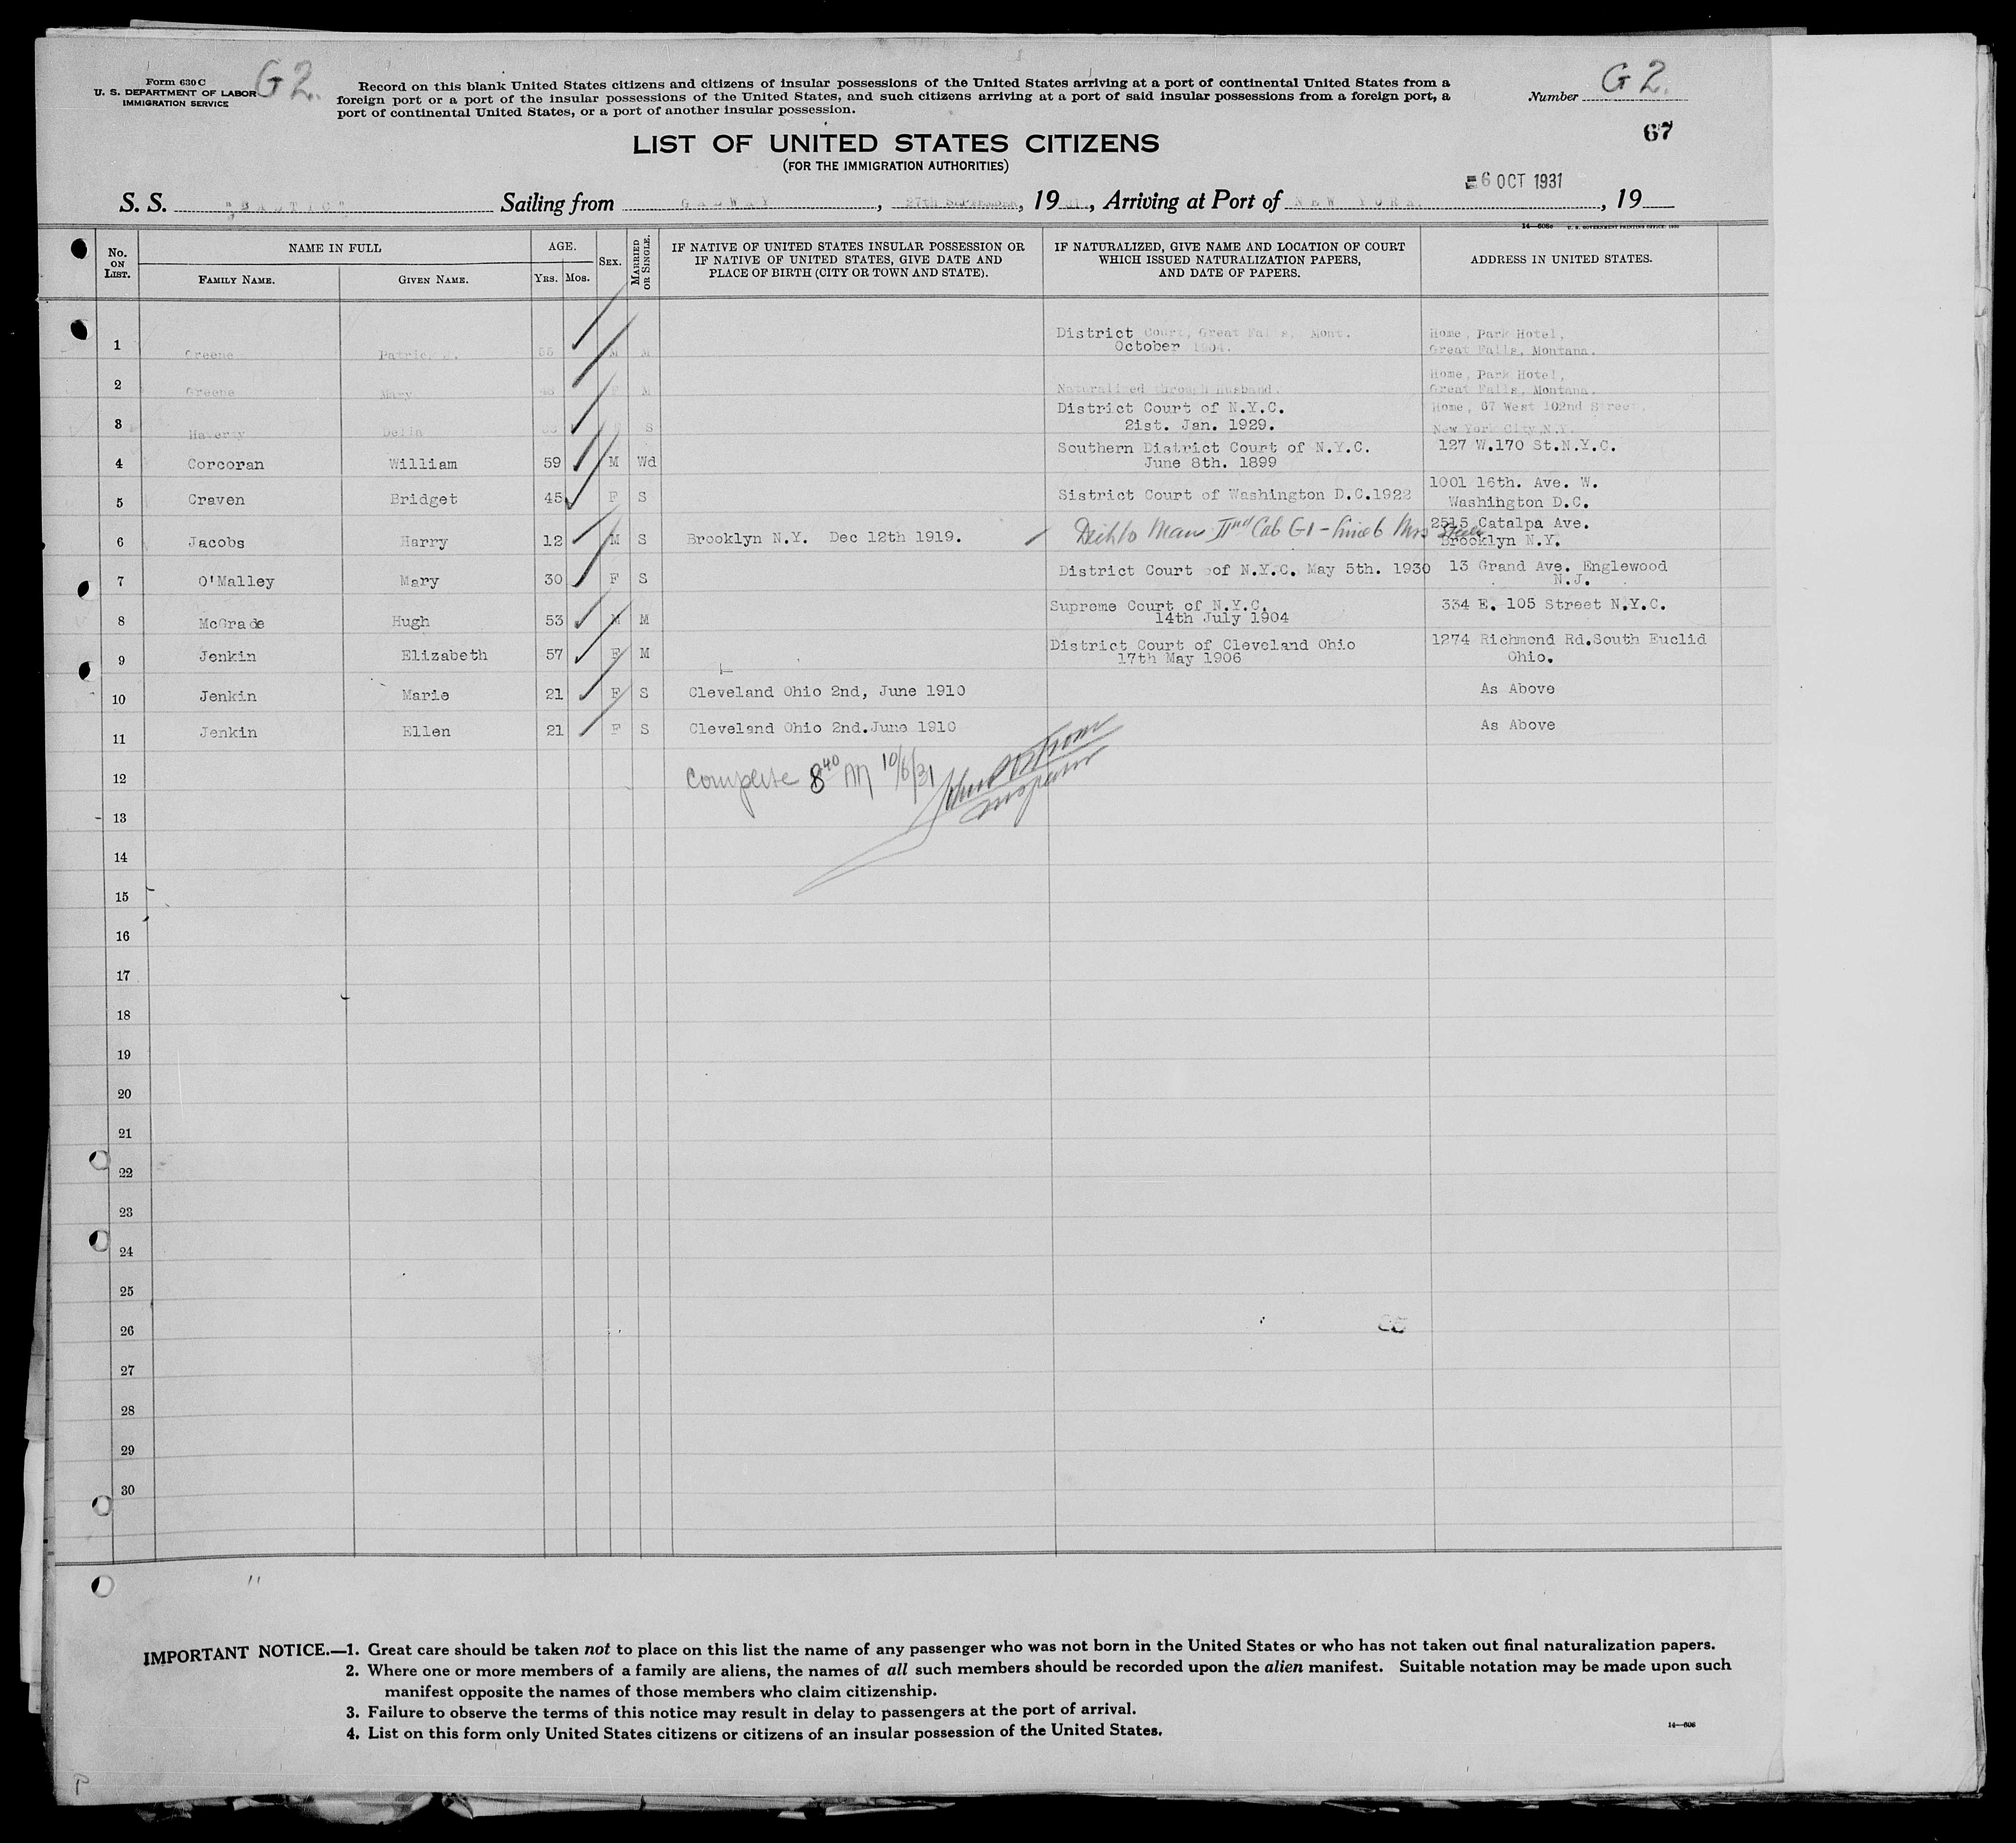 Form 630 C
U. S. DEPARTMENT OF LABOR
IMMIGRATION SERVICE
G 2.
Record on this blank United States citizens and citizens of insular possessions of the United States arriving at a port of continental United States from a
foreign port or a port of the insular possessions of the United States, and such citizens arriving at a port of said insular possessions from a foreign port, a
port of continental United States, or a port of another insular possession.
Number G 2.
67
LIST OF UNITED STATES CITIZENS
(FOR THE IMMIGRATION AUTHORITIES)
6 OCT 1931
S. S. "BALTIC" Sailing from GALWAY, 27th September, 19 31, Arriving at Port of NEW YORK, 19
14—608c U. S. GOVERNMENT PRINTING OFFICE: 1930
No. ON LIST. NAME IN FULL FAMILY NAME. GIVEN NAME. AGE. YRS. MOS. SEX. MARRIED OR SINGLE. IF NATIVE OF UNITED STATES INSULAR POSSESSION OR IF NATIVE OF UNITED STATES, GIVE DATE AND PLACE OF BIRTH (CITY OR TOWN AND STATE). IF NATURALIZED, GIVE NAME AND LOCATION OF COURT WHICH ISSUED NATURALIZATION PAPERS, AND DATE OF PAPERS. ADDRESS IN UNITED STATES.
1 Greene Patrick 55 M M District Court, Great Falls, Mont. October 1904. Home, Park Hotel, Great Falls, Montana.
2 Greene Mary 48 F M Naturalized through husband. Home, Park Hotel, Great Falls, Montana.
3 Haverty Delia F S District Court of N.Y.C. 21st. Jan. 1929. Home, 67 West 102nd Street, New York City, N.Y.
4 Corcoran William 59 M Wd Southern District Court of N.Y.C. June 8th. 1899 127 W.170 St.N.Y.C.
5 Craven Bridget 45 F S Sistrict Court of Washington D.C.1922 1001 16th. Ave. W. Washington D.C.
6 Jacobs Harry 12 M S Brooklyn N.Y. Dec 12th 1919. IInd Cab G1 - Line 6 Mrs 2515 Catalpa Ave. Brooklyn N.Y.
7 O'Malley Mary 30 F S District Court of N.Y.C. May 5th. 1930 13 Grand Ave. Englewood N.J.
8 McGrade Hugh 53 M M Supreme Court of N.Y.C. 14th July 1904 334 E. 105 Street N.Y.C.
9 Jenkin Elizabeth 57 F M District Court of Cleveland Ohio 17th May 1906 1274 Richmond Rd.South Euclid Ohio.
10 Jenkin Marie 21 F S Cleveland Ohio 2nd, June 1910 As Above
11 Jenkin Ellen 21 F S Cleveland Ohio 2nd.June 1910 As Above
12 Complete 8 40 M 10/6/31 Inspector
13
14
15
16
17
18
19
20
21
22
23
24
25
26
27
28
29
30
11
IMPORTANT NOTICE.—1. Great care should be taken not to place on this list the name of any passenger who was not born in the United States or who has not taken out final naturalization papers.
2. Where one or more members of a family are aliens, the names of all such members should be recorded upon the alien manifest. Suitable notation may be made upon such
manifest opposite the names of those members who claim citizenship.
3. Failure to observe the terms of this notice may result in delay to passengers at the port of arrival.
4. List on this form only United States citizens or citizens of an insular possession of the United States.
14—608
P